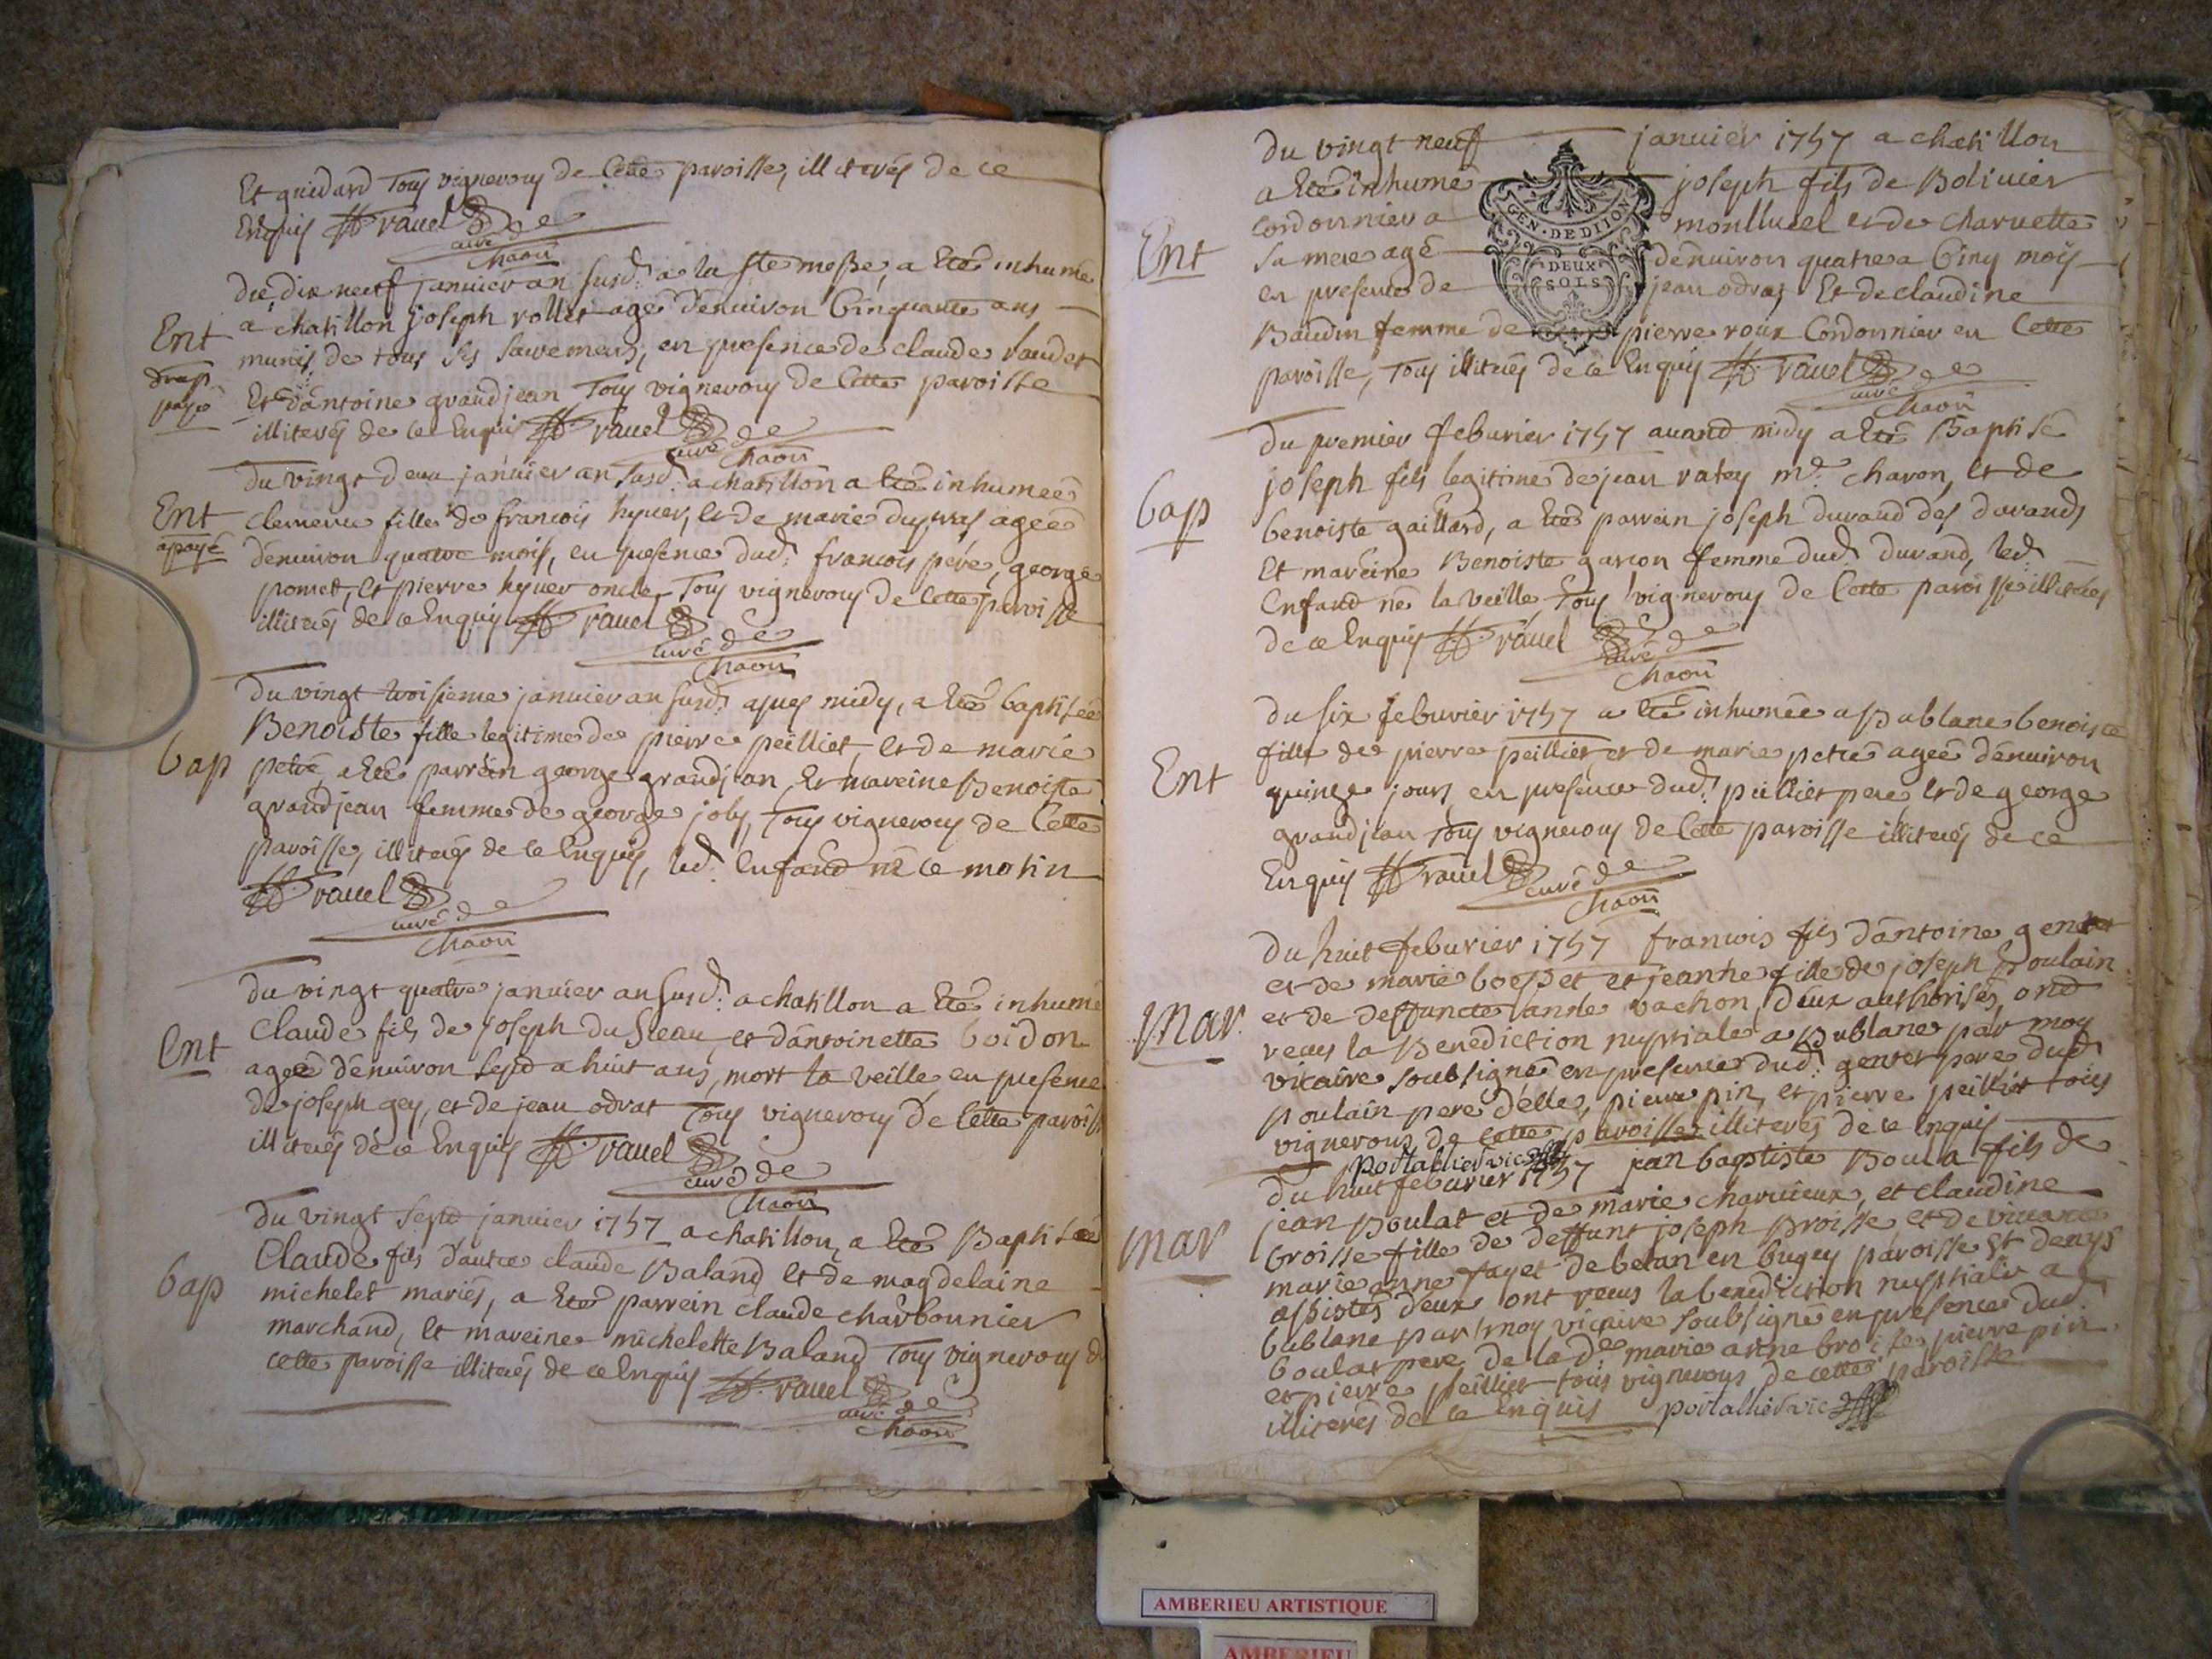 Et guedard Tous vignerons de Cette paroisse, illiterés de ce
Enquis ravel
curé de
Chaon
du dix neuf janvier an susd. a la ste messe, a Eté inhumé
a chatillon joseph rollet agé d'enuiron Cinquante ans
Ent
munis de tous ses sacremens, en presence de claude
drap
payé
Et d'antoine grandjean Tous vignerons de Cette paroisse
illiterés de ce Enquis ravel
curé de
Chaon
du vingt deux janvier an susd. a chatillon a Eté inhumeé
Ent
clemence fille de francois hyuer, et de marie dupras ageé
apayé
d'enuiron quatre mois, en presence dud. francois pere, george
pomet, et pierre hyuer oncle, Tous vignerons de Cette paroisse
illiterés de ce Enquis ravel
curé de
Chaon
du vingt troisieme janvier an susd. apres midy, a Eté baptiseé
Benoiste fille legitime de pierre peilliet, et de marie
bap
petre, a Eté parrein george grandjean, Et mareine Benoiste
grandjean femme de george joly, Tous vignerons de Cette
paroisse, illiterés de ce Enquis, led. Enfand né ce matin
ravel
curé de
Chaon
du vingt quatre janvier an susd. a chatillon a Eté inhumé
Ent
Claude fils de joseph duseau, et d'antoinette boidon
ageé d'enuiron sept a huit ans, mort la veille en presence
de joseph gey, et de jean odrat Tous vignerons de Cette paroiss
illiterés de ce Enquis ravel
curé de
Chaon
du vingt sept janvier 1757 a chatillon, a Eté Baptiseé
Claude fils d'autre claude Baland et de magdelaine
bap
michelet mariés, a Eté parrein claude charbonnier
marchand, et mareine michelette Baland Tous vignerons d
cette paroisse illiterés de ce Enquis ravel
curé de
Chaon
du vingt neuf janvier 1757 a chatillon
a Eté inhumé joseph fils de Bolivier
GEN. DE DIJON
cordonnier a monlluel et de charuette
Ent
sa mere agé d'enuiron quatre a Cinq mois
DEUX
SOLS
en presence de jean odrat Et de claudine
Baudin femme de pierre roux Cordonnier en Cette
paroisse, Tous illiterés de ce Enquis ravel
curé de
Chaon
du premier feburier 1757 auand midy a Eté Baptisé
joseph fils legitime de jean ratey md. charon, et de
bap
benoiste gaillard, a Eté parrein joseph durand des durands
Et mareine Benoiste garçon femme dud. durand, led.
Enfand né la veille Tous vignerons de Cette paroisse illiterés
de ce Enquis ravel
curé de
Chaon
du six feburier 1757 a Eté inhumée a Bublane benoiste
fille de pierre peilliet et de marie petre ageé d'enuiron
Ent
quinze jours en presence dud. peilliet pere et de george
grandjean Tous vignerons de Cette paroisse illiterés de ce
Enquis ravel
curé de
Chaon
du huit feburier 1757 francois fils d'antoine genet
et de marie et jeanne fille de joseph poulain
et de deffuncte anne vachon, d'eux authorisés, ond
Mar
receu la Benediction nuptiale a Bublane par moy
vicaire soubsigné en presence dud. genet pere dud.
poulain pere d'elle, pierre pin, et pierre peilliet tous
vignerons de Cette paroisse illiterés de ce Enquis
portallier vic
du huit feburier 1757 jean baptiste Boula fils de
jean Boulat et de marie charuieux, et claudine
mar
broisse fille de deffunt joseph Broisse et de vivante
marie anne fayet de betan en bugey paroisse St denys
assistés d'eux ont receu la benediction nuptiale a
bublane par moy vicaire soubsigné en presence dud.
boulat pere de la de marie anne broisse pierre pin
et pierre peilliet tous vignerons de cette paroisse
illiterés de ce Enquis portallier vic
AMBERIEU ARTISTIQUE
AMBERIEU